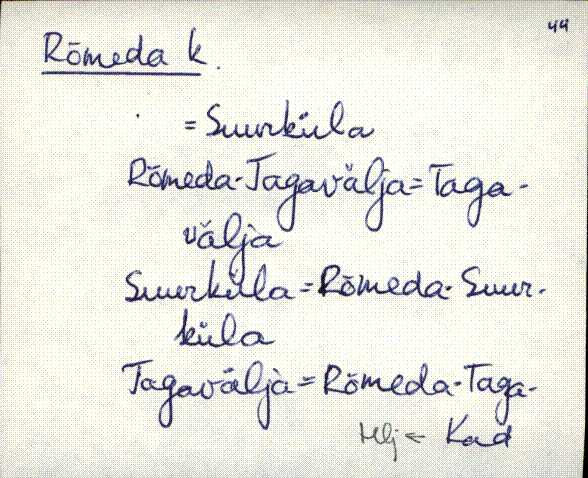 44
Rõmeda k.
= Suurküla
Rõmeda-Tagavälja = Taga-
välja
Suurküla = Rõmeda-Suur-
küla
Tagavälja = Rõmeda-Taga-
Mlj ← Kad